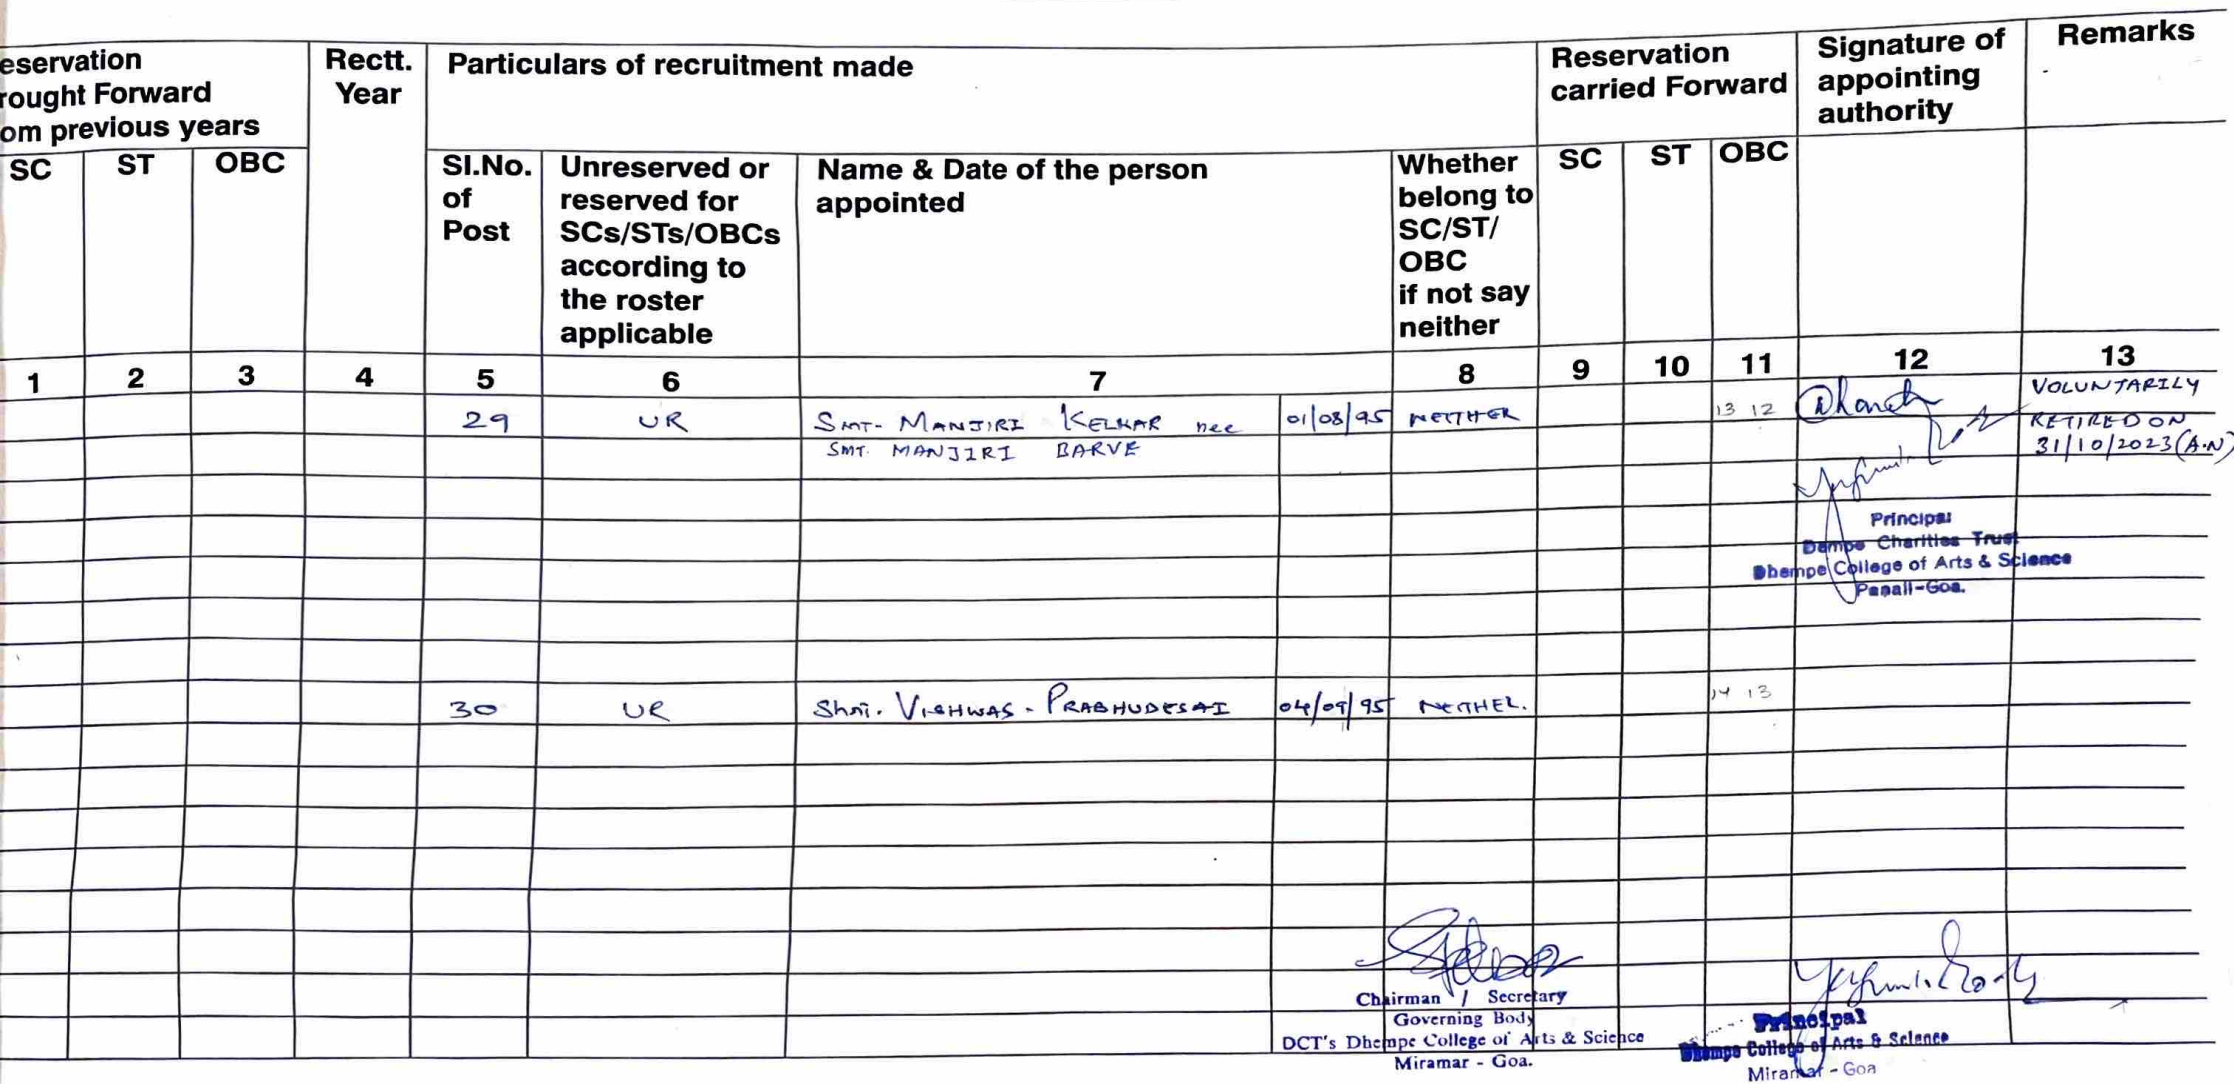 eservation
rought Forward
om previous years
Rectt.
Year
Particulars of recruitment made
Reservation
carried Forward
Signature of
appointing
authority
Remarks
SC ST OBC
Sl.No.
of
Post
Unreserved or
reserved for
SCs/STs/OBCs
according to
the roster
applicable
Name & Date of the person
appointed
Whether
belong to
SC/ST/
OBC
if not say
neither
SC ST OBC
1 2 3 4 5 6 7 8 9 10 11 12 13
29 UR SMT- MANJIRI KELKAR nee 01/08/95 NEITHER 13 12 VOLUNTARILY
SMT. MANJIRI BARVE RETIRED ON
31/10/2023 (A.N)
Principal
Dempe Charities Trust
Dhempe College of Arts & Science
Panaji-Goa.
30 UR Shri. VISHWAS - PRABHUDESAI 04/09/95 NEITHER. 14 13
Chairman / Secretary
Governing Body
DCT's Dhempe College of Arts & Science
Miramar - Goa.
Principal
Dhempe College of Arts & Science
Miramar - Goa